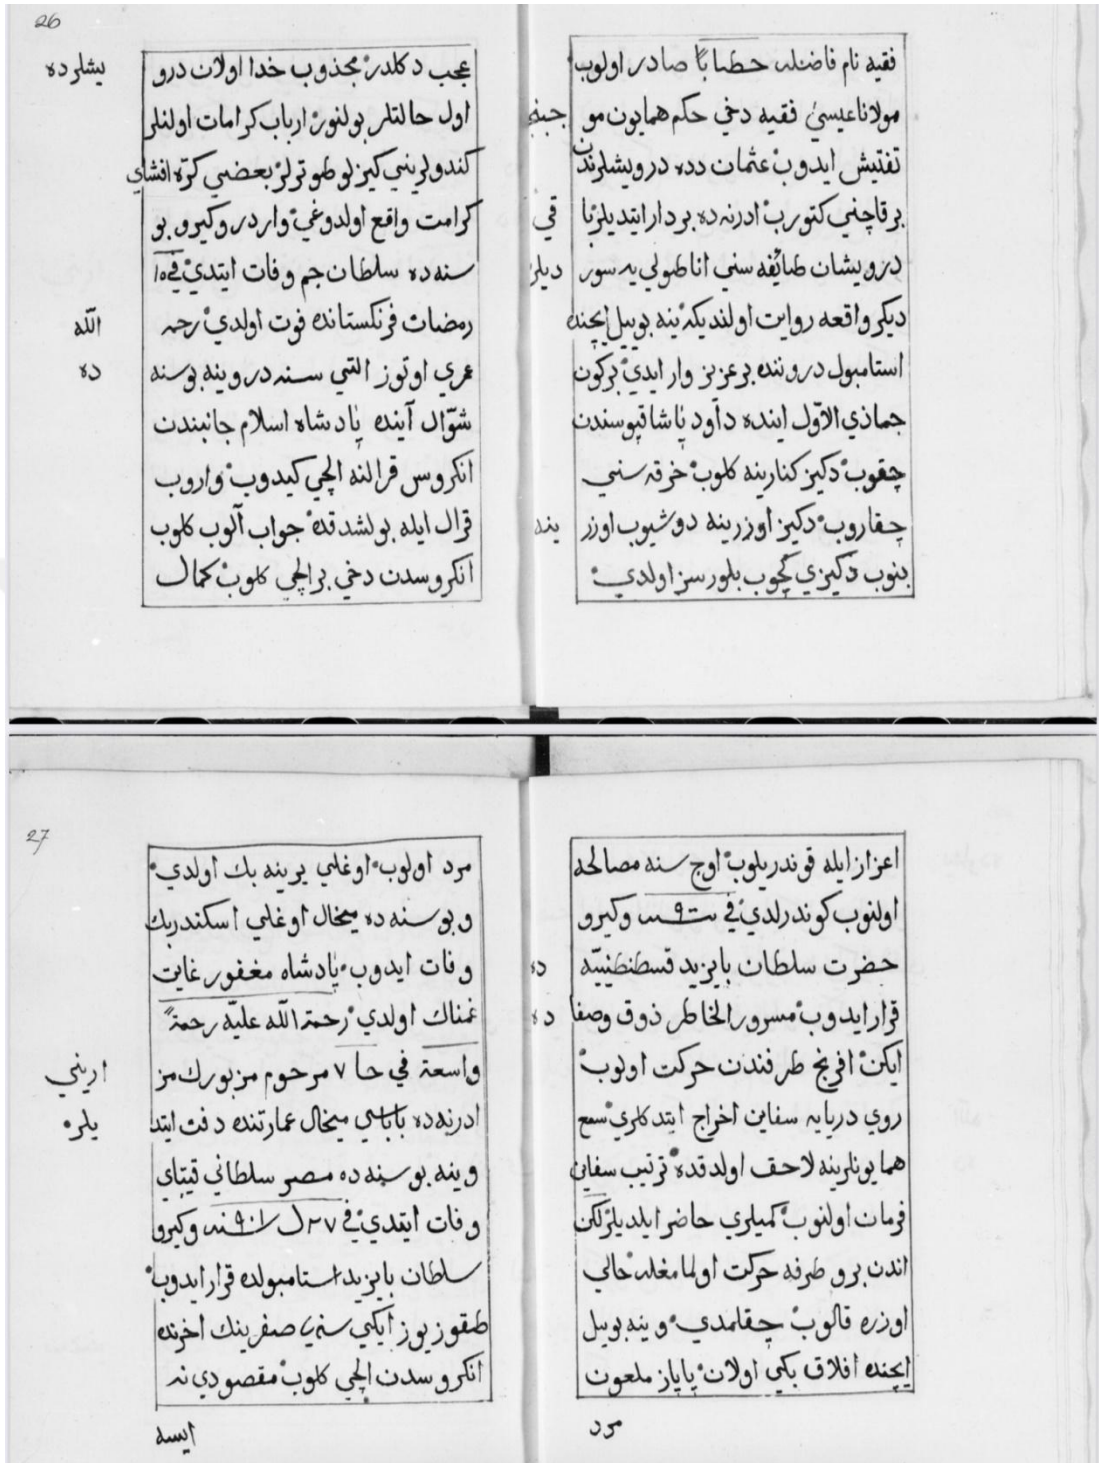 26
فقيه نام فاضله خطابًا صادر اولوب
مولانا عيسىٰ فقيه دخي حكم همايون موجبنجه
تفتيش ايدوب عثمان دده درويشلرندن
برقاچني كتورب ادرنه ده بردار ايتديلر باقي
درويشان طائفه سني اناطولي يه سورديلر
ديكر واقعه روايت اولنديكه ينه بوييل ايچنده
استامبول دروننده بر عزيز وار ايدي بركون
جماذي الاوّل اينده داود پاشا قپوسندن
چقوب دكيز كنارينه كلوب خرقه سني
چقاروب دكيز اوزرينه دوشيوب اوزرينه
بنوب دكيزي كچوب بلورسز اولدي
عجب دكلدر مجذوب خدا اولان درويشلرده
اول حالتلر بولنور ارباب كرامات اولنلر
كندولريني كيزلو طوترلر بعضي كرّه افشاي
كرامت واقع اولدوغي واردر وكيرو بو
سنه ده سلطان جم وفات ايتدي في ١٥
رمضان فرنكستانده فوت اولدي رحمه الله
عمري اوتوز التي سنه در وينه بوسنه ده
شوّال آينده پادشاه اسلام جانبندن
انكروس قرالنه الچي كيدوب واروب
قرال ايله بولشدقده جواب آلوب كلوب
انكروسدن دخي بر الچي كلوب كمال
27
اعزاز ايله قوندريلوب اوچ سنه مصالحه
اولنوب كوندرلدي في سنه وكيرو
حضرت سلطان بايزيد قسطنطنيّه ده
قرار ايدوب مسرور الخاطر ذوق وصفاده
ايكن افرنج طرفندن حركت اولوب
روي دريايه سفاين اخراج ايتدكلري سمع
همايونلرينه لاحق اولدقده ترتيب سفاين
فرمان اولنوب كميلري حاضر ايلديلر لكن
اندن برو طرفه حركت اولمامغله حالي
اوزره قالوب چقلمدي وينه بوييل
ايچنده افلاق بكي اولان پاپاز ملعون
مرد
مرد اولوب اوغلي يرينه بك اولدي
وبوسنه ده ميخال اوغلي اسكندر بك
وفات ايدوب پادشاه مغفور غايت
غمناك اولدي رحمة الله عليه رحمةً
واسعة في حا ٧ مرحوم مزبورك مزاريني
ادرنه ده باباسي ميخال عمارتنده دفن ايتديلر
وينه بوسنه ده مصر سلطاني قيتباي
وفات ايتدي في ٢٧ ل سنه ٩٠١ وكيرو
سلطان بايزيد استامبولده قرار ايدوب
طقوز يوز ايكي سنه صفرينك اخرنده
انكروسدن الچي كلوب مقصودي نه
ايسه